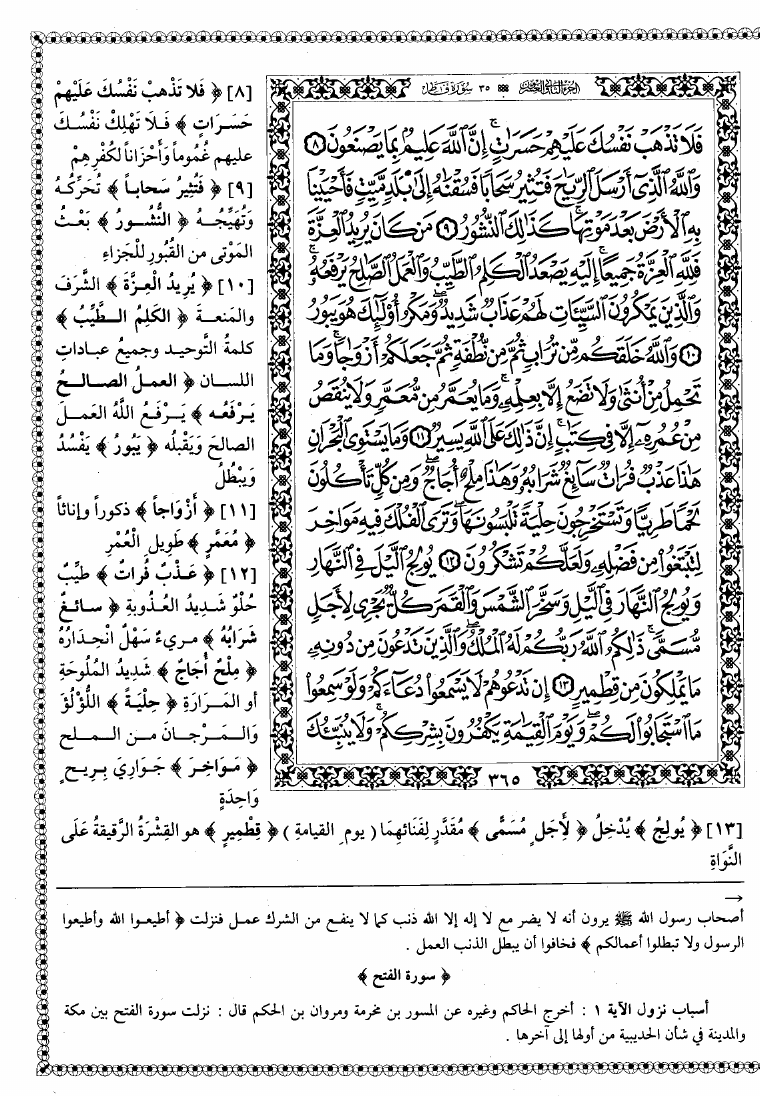 الجزء الثاني والعشرون ٣٥ سورة فاطر
فَلَا تَذْهَبْ نَفْسُكَ عَلَيْهِمْ حَسَرَٰتٍ ۚ إِنَّ ٱللَّهَ عَلِيمٌۢ بِمَا يَصْنَعُونَ ٨
وَٱللَّهُ ٱلَّذِىٓ أَرْسَلَ ٱلرِّيَٰحَ فَتُثِيرُ سَحَابًا فَسُقْنَٰهُ إِلَىٰ بَلَدٍ مَّيِّتٍ فَأَحْيَيْنَا
بِهِ ٱلْأَرْضَ بَعْدَ مَوْتِهَا ۚ كَذَٰلِكَ ٱلنُّشُورُ ٩ مَن كَانَ يُرِيدُ ٱلْعِزَّةَ
فَلِلَّهِ ٱلْعِزَّةُ جَمِيعًا ۚ إِلَيْهِ يَصْعَدُ ٱلْكَلِمُ ٱلطَّيِّبُ وَٱلْعَمَلُ ٱلصَّٰلِحُ يَرْفَعُهُۥ ۚ
وَٱلَّذِينَ يَمْكُرُونَ ٱلسَّيِّـَٔاتِ لَهُمْ عَذَابٌ شَدِيدٌ ۖ وَمَكْرُ أُو۟لَٰٓئِكَ هُوَ يَبُورُ
١٠ وَٱللَّهُ خَلَقَكُم مِّن تُرَابٍ ثُمَّ مِن نُّطْفَةٍ ثُمَّ جَعَلَكُمْ أَزْوَٰجًا ۚ وَمَا
تَحْمِلُ مِنْ أُنثَىٰ وَلَا تَضَعُ إِلَّا بِعِلْمِهِۦ ۚ وَمَا يُعَمَّرُ مِن مُّعَمَّرٍ وَلَا يُنقَصُ
مِنْ عُمُرِهِۦٓ إِلَّا فِى كِتَٰبٍ ۚ إِنَّ ذَٰلِكَ عَلَى ٱللَّهِ يَسِيرٌ ١١ وَمَا يَسْتَوِى ٱلْبَحْرَانِ
هَٰذَا عَذْبٌ فُرَاتٌ سَآئِغٌ شَرَابُهُۥ وَهَٰذَا مِلْحٌ أُجَاجٌ ۖ وَمِن كُلٍّ تَأْكُلُونَ
لَحْمًا طَرِيًّا وَتَسْتَخْرِجُونَ حِلْيَةً تَلْبَسُونَهَا ۖ وَتَرَى ٱلْفُلْكَ فِيهِ مَوَاخِرَ
لِتَبْتَغُوا۟ مِن فَضْلِهِۦ وَلَعَلَّكُمْ تَشْكُرُونَ ١٢ يُولِجُ ٱلَّيْلَ فِى ٱلنَّهَارِ
وَيُولِجُ ٱلنَّهَارَ فِى ٱلَّيْلِ وَسَخَّرَ ٱلشَّمْسَ وَٱلْقَمَرَ كُلٌّ يَجْرِى لِأَجَلٍ
مُّسَمًّى ۚ ذَٰلِكُمُ ٱللَّهُ رَبُّكُمْ لَهُ ٱلْمُلْكُ ۚ وَٱلَّذِينَ تَدْعُونَ مِن دُونِهِۦ
مَا يَمْلِكُونَ مِن قِطْمِيرٍ ١٣ إِن تَدْعُوهُمْ لَا يَسْمَعُوا۟ دُعَآءَكُمْ وَلَوْ سَمِعُوا۟
مَا ٱسْتَجَابُوا۟ لَكُمْ ۖ وَيَوْمَ ٱلْقِيَٰمَةِ يَكْفُرُونَ بِشِرْكِكُمْ ۚ وَلَا يُنَبِّئُكَ
٣٦٥
[٨] ﴿ فَلا تَذْهبْ نَفْسُكَ عَلَيْهِمْ
حَسَرَاتٍ ﴾ فَلَا تَهْلِكْ نَفْسُكَ
عليهم غُمُوماً وَأَحْزَاناً لكُفْرِهِمْ
[٩] ﴿ فَتُثِيرُ سَحاباً ﴾ تُحَرِّكُهُ
وَتُهَيِّجُهُ ﴿ النُّشُورُ ﴾ بَعْثُ
المَوْتى من القُبُورِ لِلْجَزاءِ
[١٠] ﴿ يُرِيدُ الْعِزَّةَ ﴾ الشَّرَفَ
والمَنعةَ ﴿ الكَلِمُ الطَّيِّبُ ﴾
كلمةُ التَّوحيدِ وجميعُ عباداتِ
اللسان ﴿ العملُ الصالحُ
يَرْفَعُه ﴾ يَرْفَعُ اللَّهُ العَمَلَ
الصالحَ وَيَقْبلُه ﴿ يَبُورُ ﴾ يَفْسُدُ
وَيَبْطُلُ
[١١] ﴿ أَزْوَاجاً ﴾ ذكوراً وإناثاً
﴿ مُعَمَّرٍ ﴾ طَوِيلِ الْعُمْرِ
[١٢] ﴿ عَذْبٌ فُراتٌ ﴾ طيِّبٌ
حُلْوٌ شَدِيدُ العُذُوبةِ ﴿ سائغٌ
شَرَابُهُ ﴾ مريءٌ سَهْلٌ انْحِدَارُهُ
﴿ مِلْحٌ أُجَاجٌ ﴾ شَدِيدُ المُلُوحَةِ
أو المَرَارَةِ ﴿ حِلْيَةً ﴾ اللُّؤْلُؤَ
وَالمَرْجَانَ من الملح
﴿ مَوَاخِرَ ﴾ جَوَارِيَ بِرِيحٍ
وَاحِدَةٍ
[١٣] ﴿ يُولِجُ ﴾ يُدْخِلُ ﴿ لأَجَلٍ مُسَمًّى ﴾ مُقَدَّرٍ لِفَنَائهِمَا ( يومِ القيامةِ ) ﴿ قِطْمِيرٍ ﴾ هو القِشْرَةُ الرَّقيقةُ عَلَى
النَّوَاةِ
→
أصحاب رسول الله ﷺ يرون أنه لا يضر مع لا إله إلا الله ذنب كما لا ينفع من الشرك عمل فنزلت ﴿ أطيعوا الله وأطيعوا
الرسول ولا تبطلوا أعمالكم ﴾ فخافوا أن يبطل الذنب العمل .
﴿ سورة الفتح ﴾
أسباب نزول الآية ١ : أخرج الحاكم وغيره عن المسور بن مخرمة ومروان بن الحكم قال : نزلت سورة الفتح بين مكة
والمدينة في شأن الحديبية من أولها إلى آخرها .